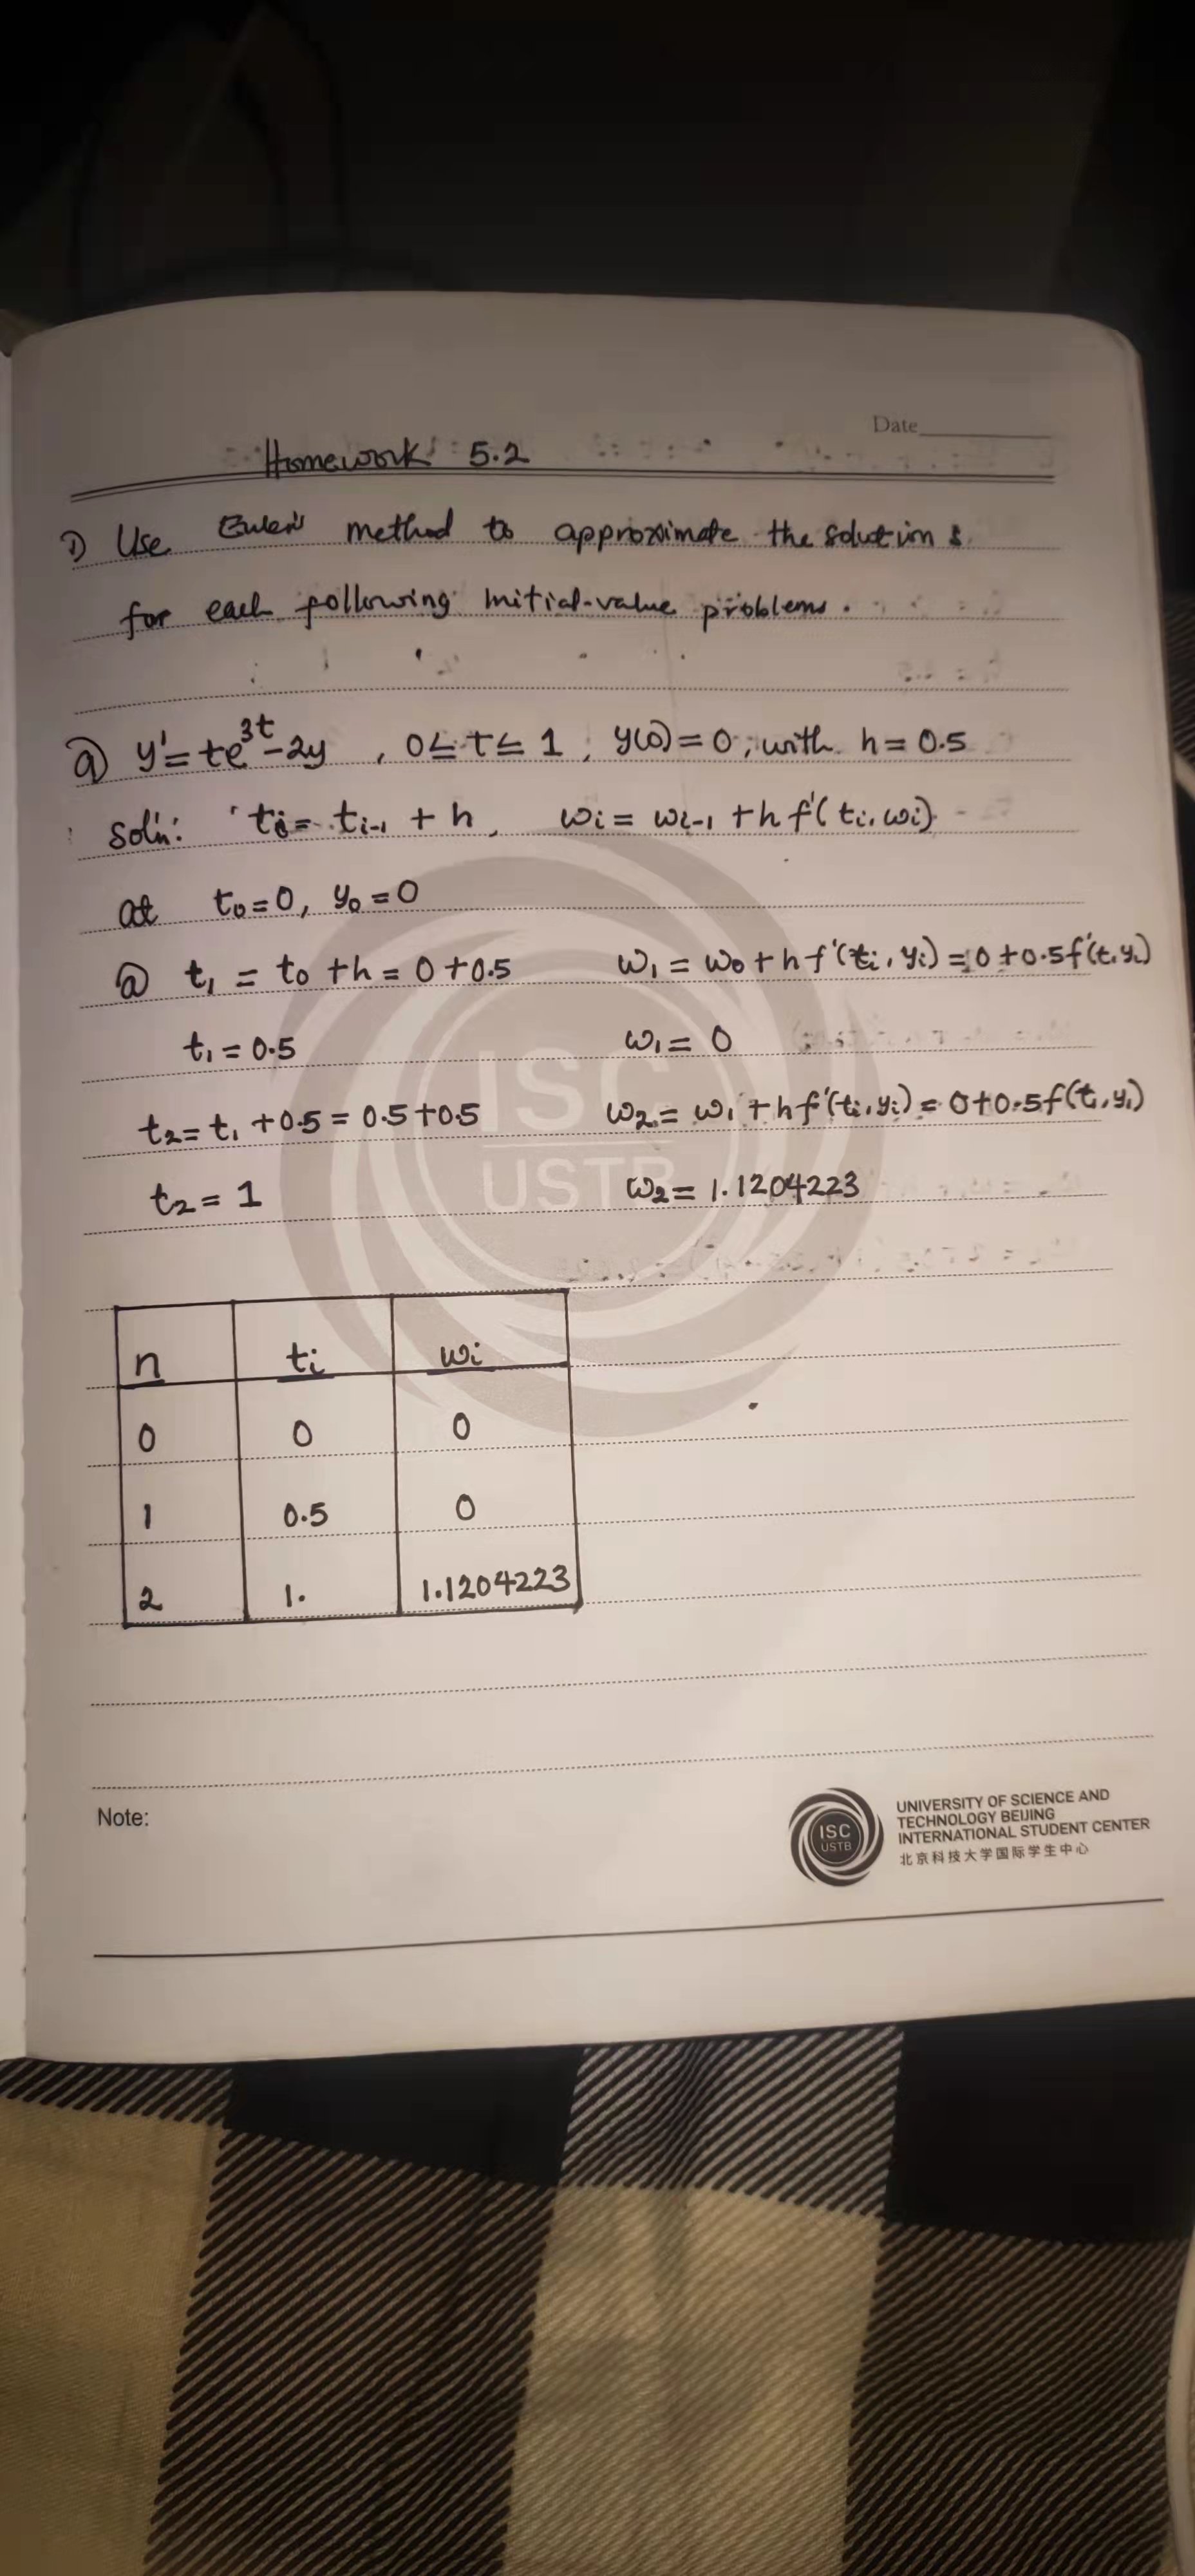 Date
Homework 5.2
1) Use Euler's method to approximate the solutions
for each following initial-value problems.
a) y' = te^{3t} - 2y , 0 ≤ t ≤ 1 , y(0) = 0 ; with h = 0.5
soln: ti = ti-1 + h, wi = wi-1 + h f'(ti, wi)
at t0 = 0, y0 = 0
@ t1 = t0 + h = 0 + 0.5 w1 = w0 + h f'(ti, yi) = 0 + 0.5 f'(ti, yi)
t1 = 0.5 w1 = 0
t2 = t1 + 0.5 = 0.5 + 0.5 w2 = w1 + h f'(ti, yi) = 0 + 0.5 f(ti, yi)
t2 = 1 w2 = 1.1204223
ISC
USTB
n ti wi
0 0 0
1 0.5 0
2 1. 1.1204223
Note:
ISC
USTB
UNIVERSITY OF SCIENCE AND
TECHNOLOGY BEIJING
INTERNATIONAL STUDENT CENTER
北京科技大学国际学生中心